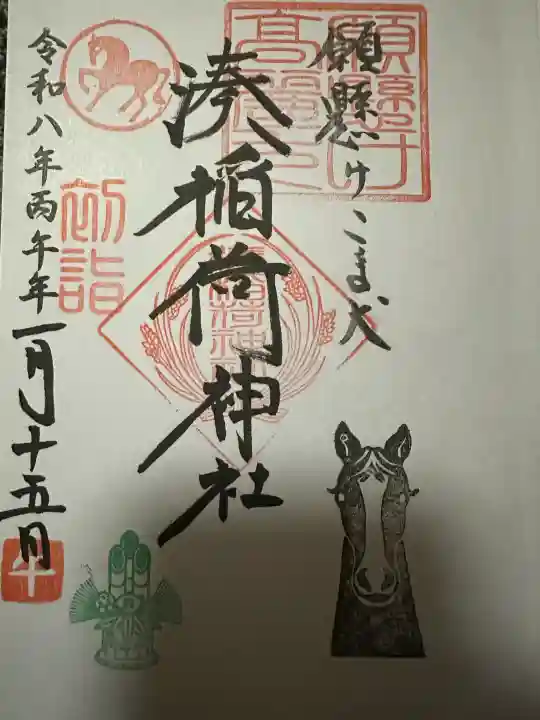 願懸けこま犬
願懸け高麗犬
湊稲荷神社
湊稲荷神社
令和八年丙午年一月十五日
初詣
午